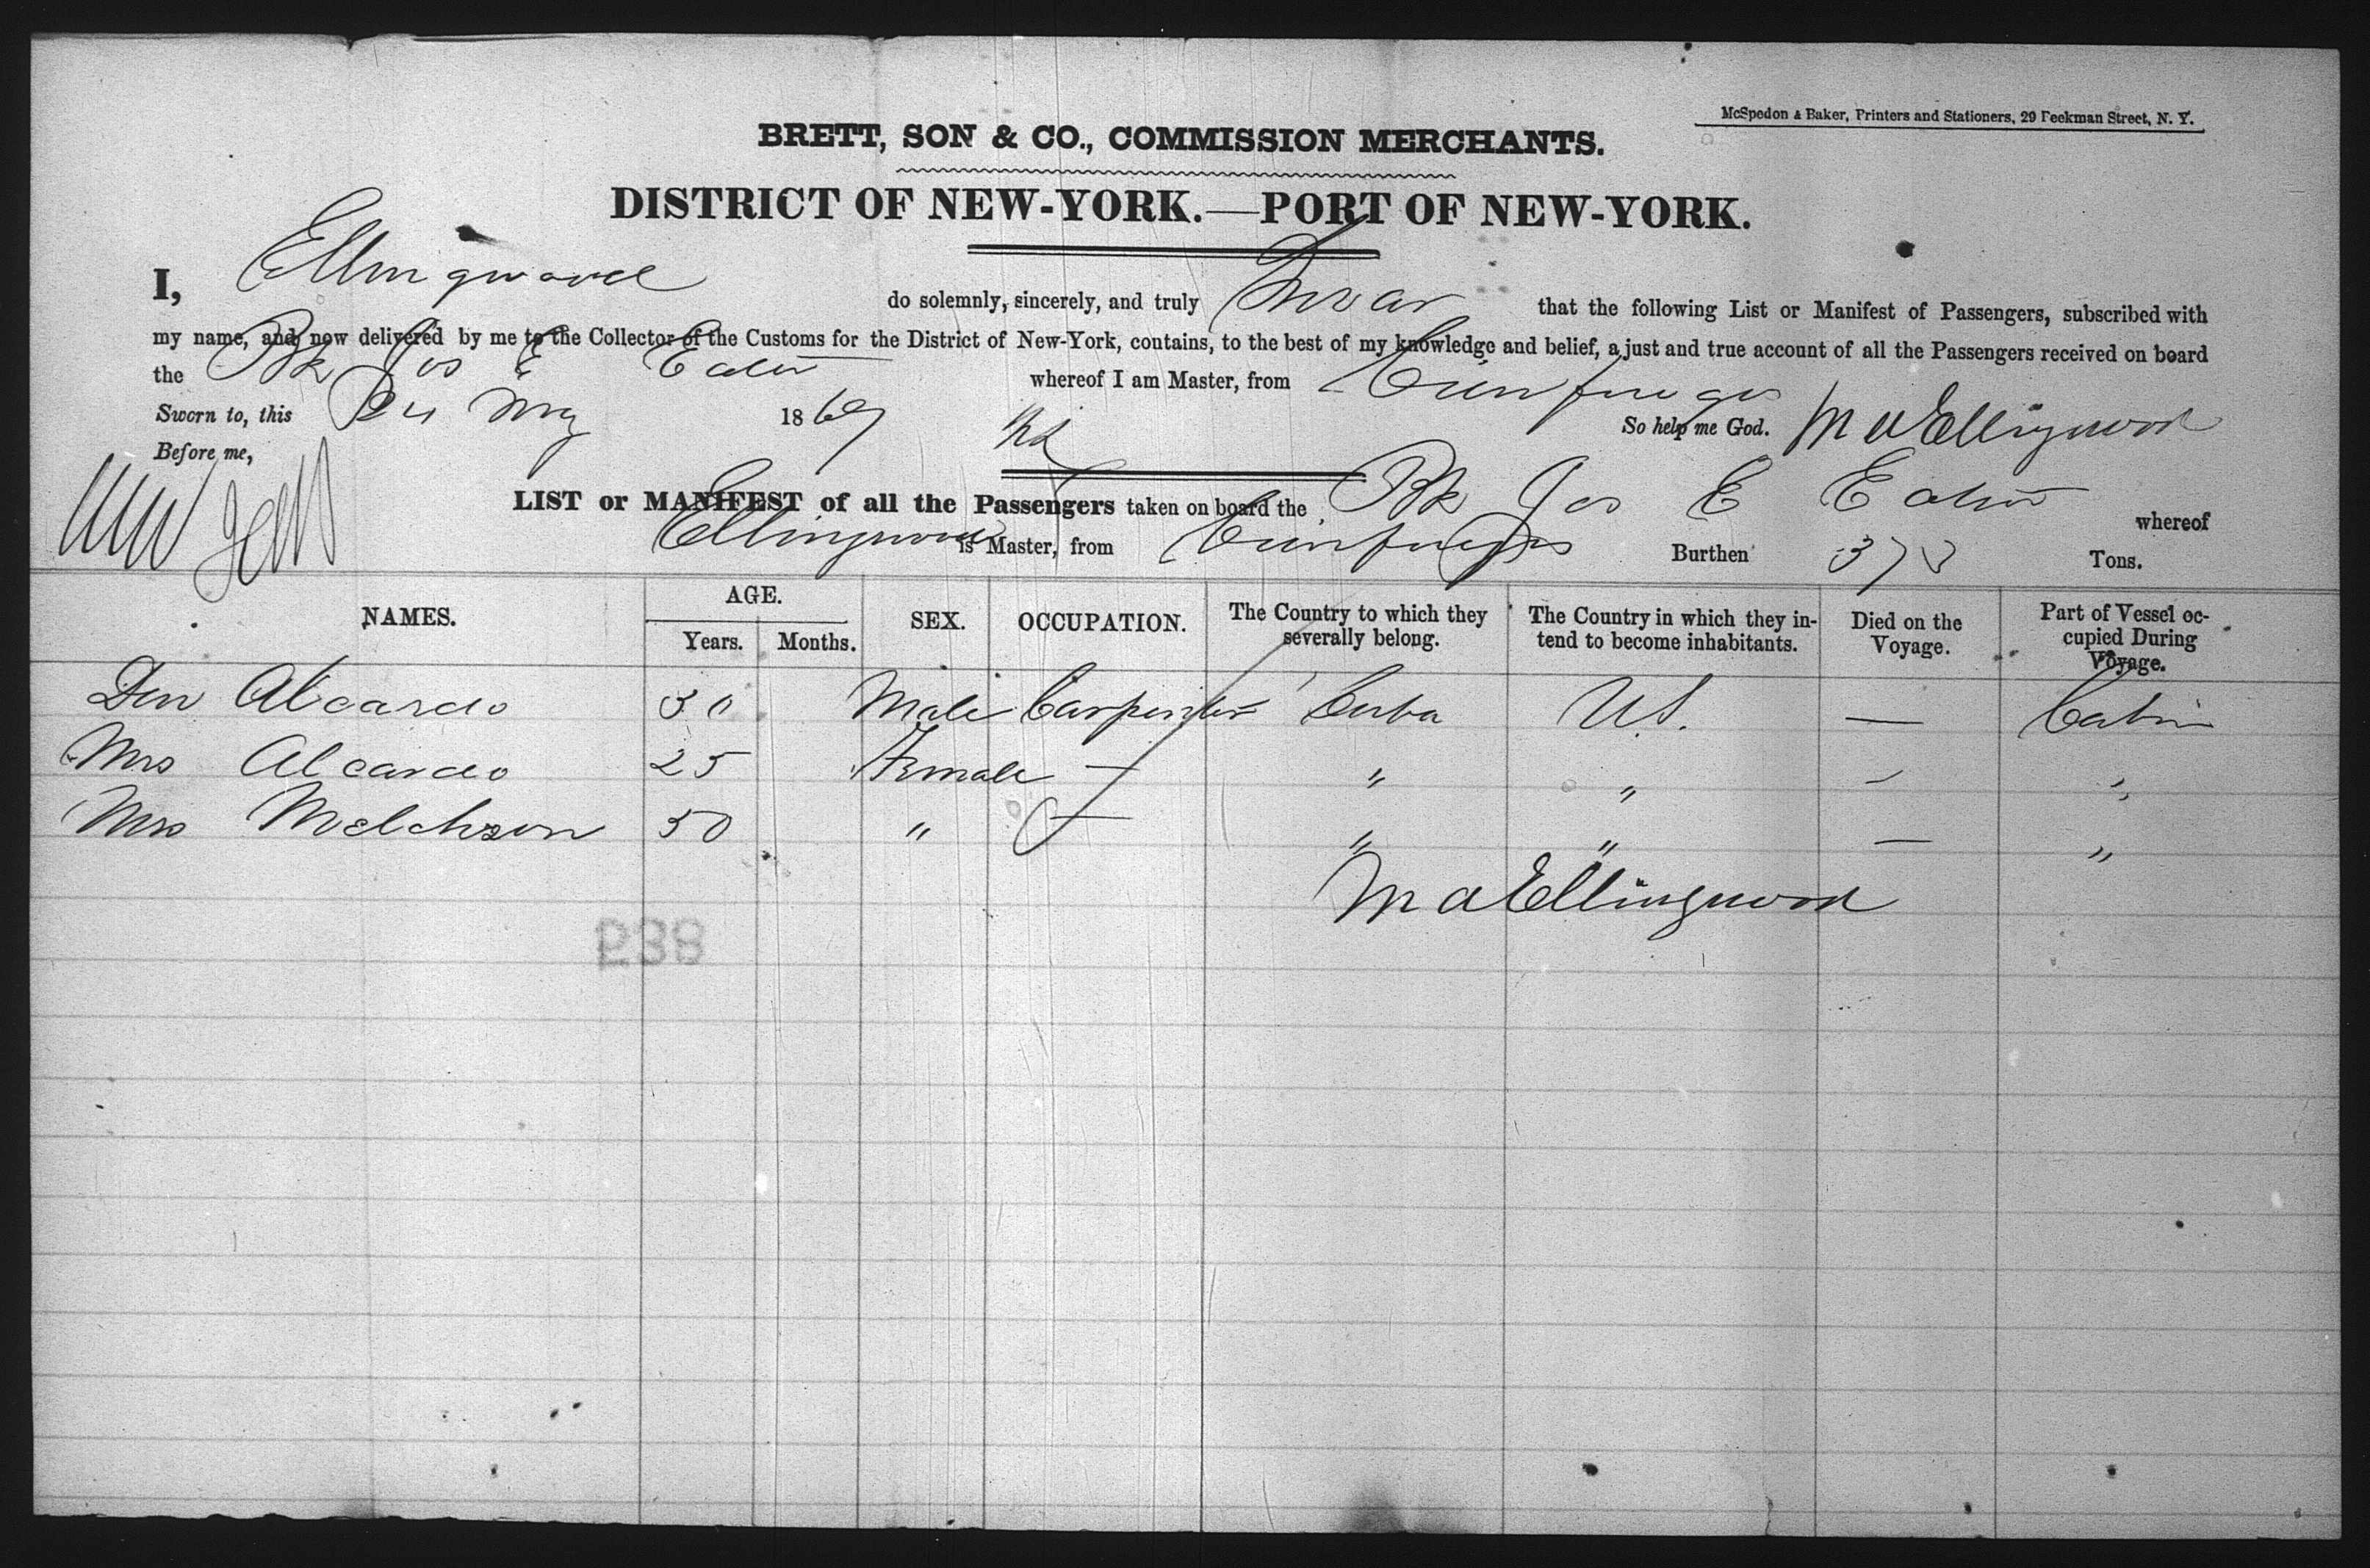 McSpedon & Baker, Printers and Stationers, 29 Beekman Street, N. Y.
BRETT, SON & CO., COMMISSION MERCHANTS.
DISTRICT OF NEW-YORK.—PORT OF NEW-YORK.
I, Ellingwood do solemnly, sincerely, and truly Swear that the following List or Manifest of Passengers, subscribed with
my name, and now delivered by me to the Collector of the Customs for the District of New-York, contains, to the best of my knowledge and belief, a just and true account of all the Passengers received on board
the Bk Jos E Eaton whereof I am Master, from Cienfuegos
Sworn to, this 24 May 1869 So help me God. M A Ellingwood
Before me,
LIST or MANIFEST of all the Passengers taken on board the Bk Jos E Eaton whereof
Ellingwood is Master, from Cienfuegos Burthen Tons.
NAMES. AGE. Years. Months. SEX. OCCUPATION. The Country to which they severally belong. The Country in which they intend to become inhabitants. Died on the Voyage. Part of Vessel occupied During Voyage.
Don Alcardo 30 Male Carpenter Cuba U.S. — Cabin
Mrs Alcardo 25 Female — " " — "
Mrs Melchson 50 " — " " — "
M A Ellingwood